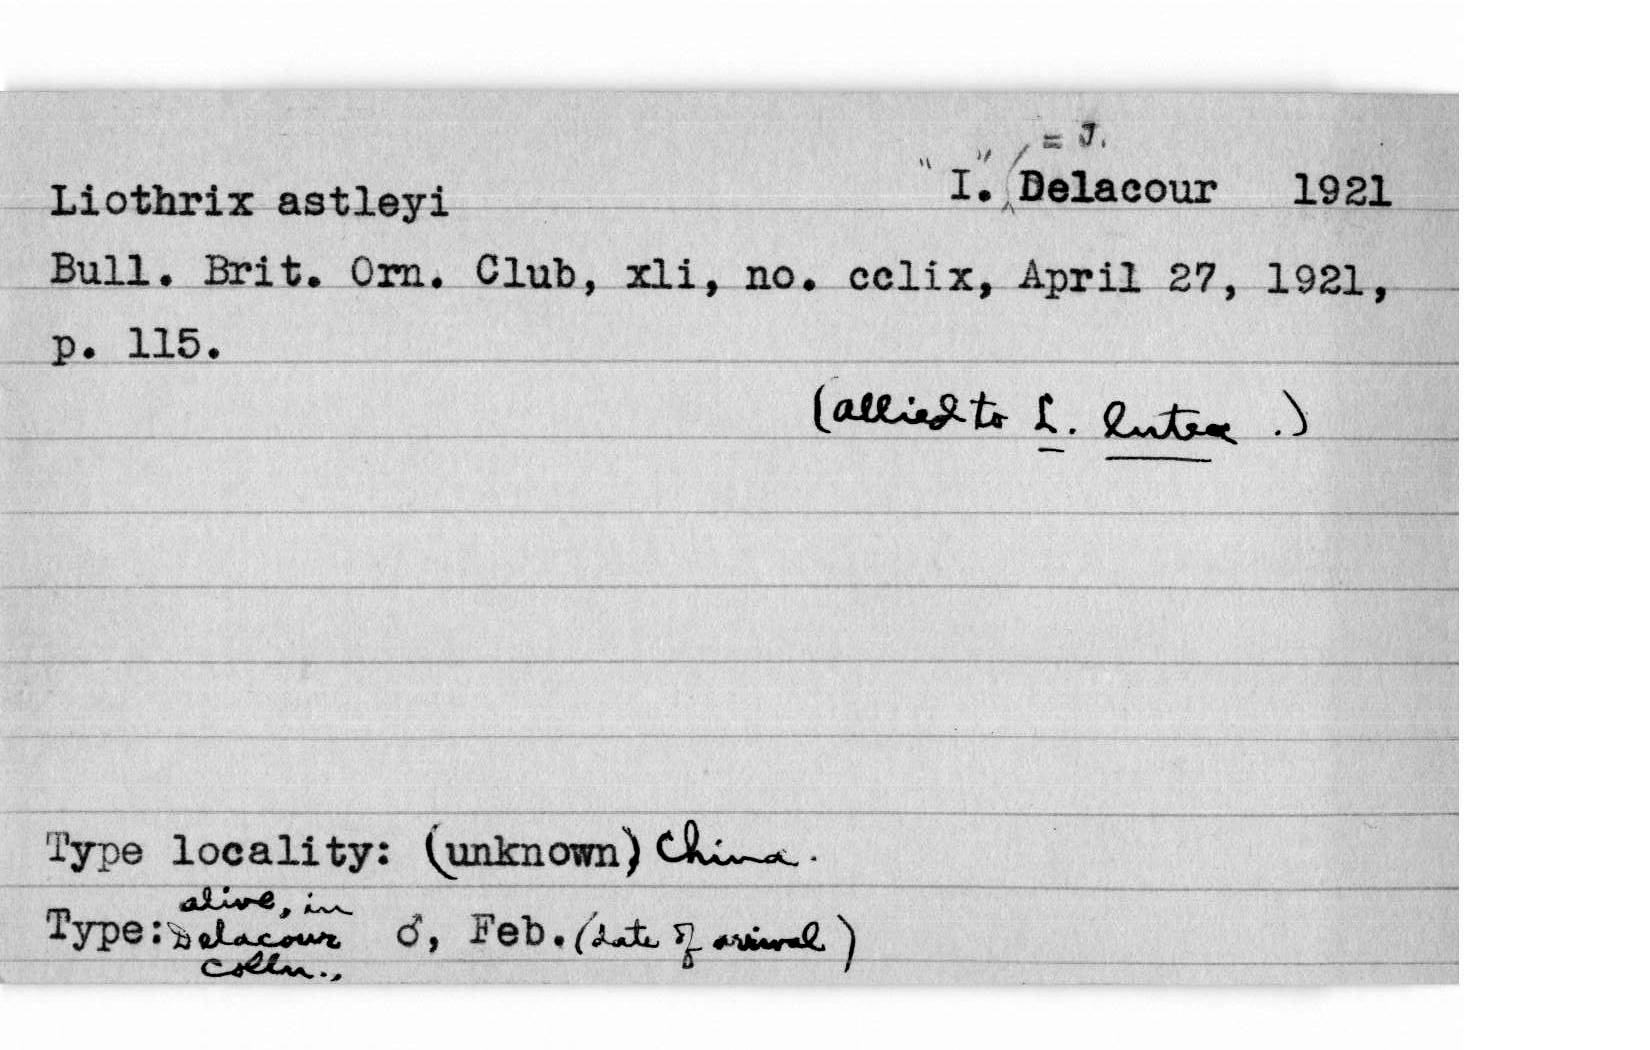 = J.
Liothrix astleyi "I." Delacour 1921
Bull. Brit. Orn. Club, xli, no. cclix, April 27, 1921,
p. 115.
(allied to L. lutea .)
Type locality: (unknown) China.
alive, in
Type: Delacour ♂, Feb. (date of arrival)
colln.,